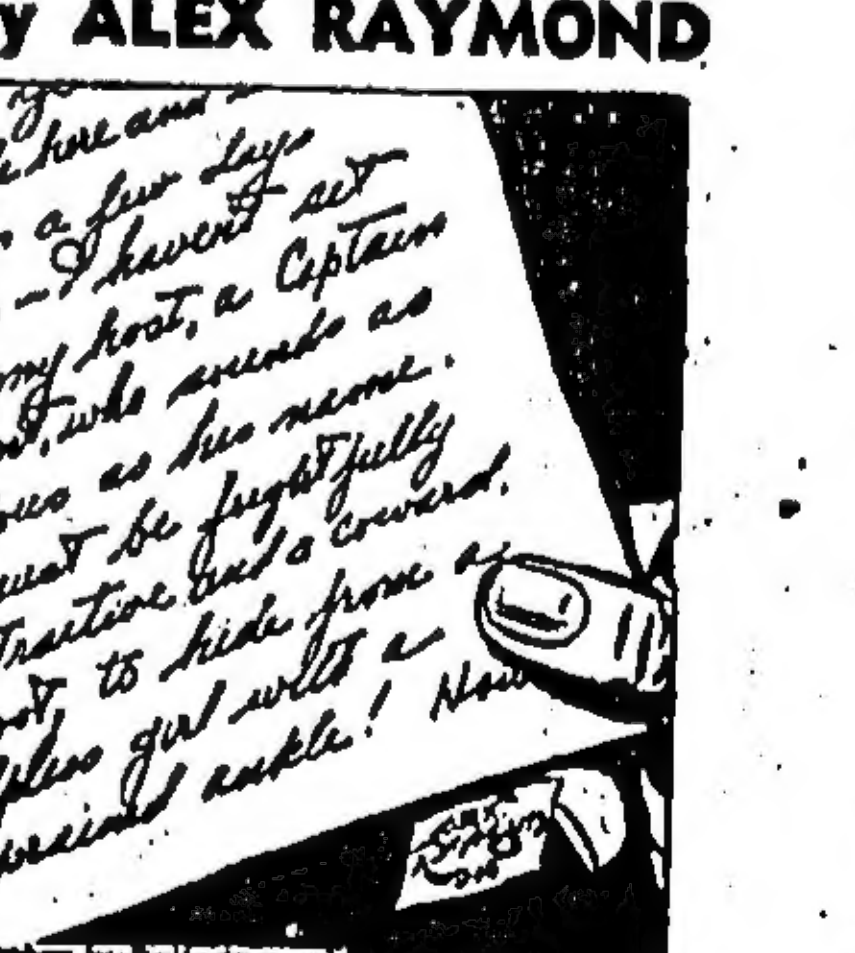 y ALEX RAYMOND
here and
a few days
- I haven't set
my host, a Captain
who sounds as
as his name.
be frightfully
and a coward.
to hide from a
girl with a
ankle! How